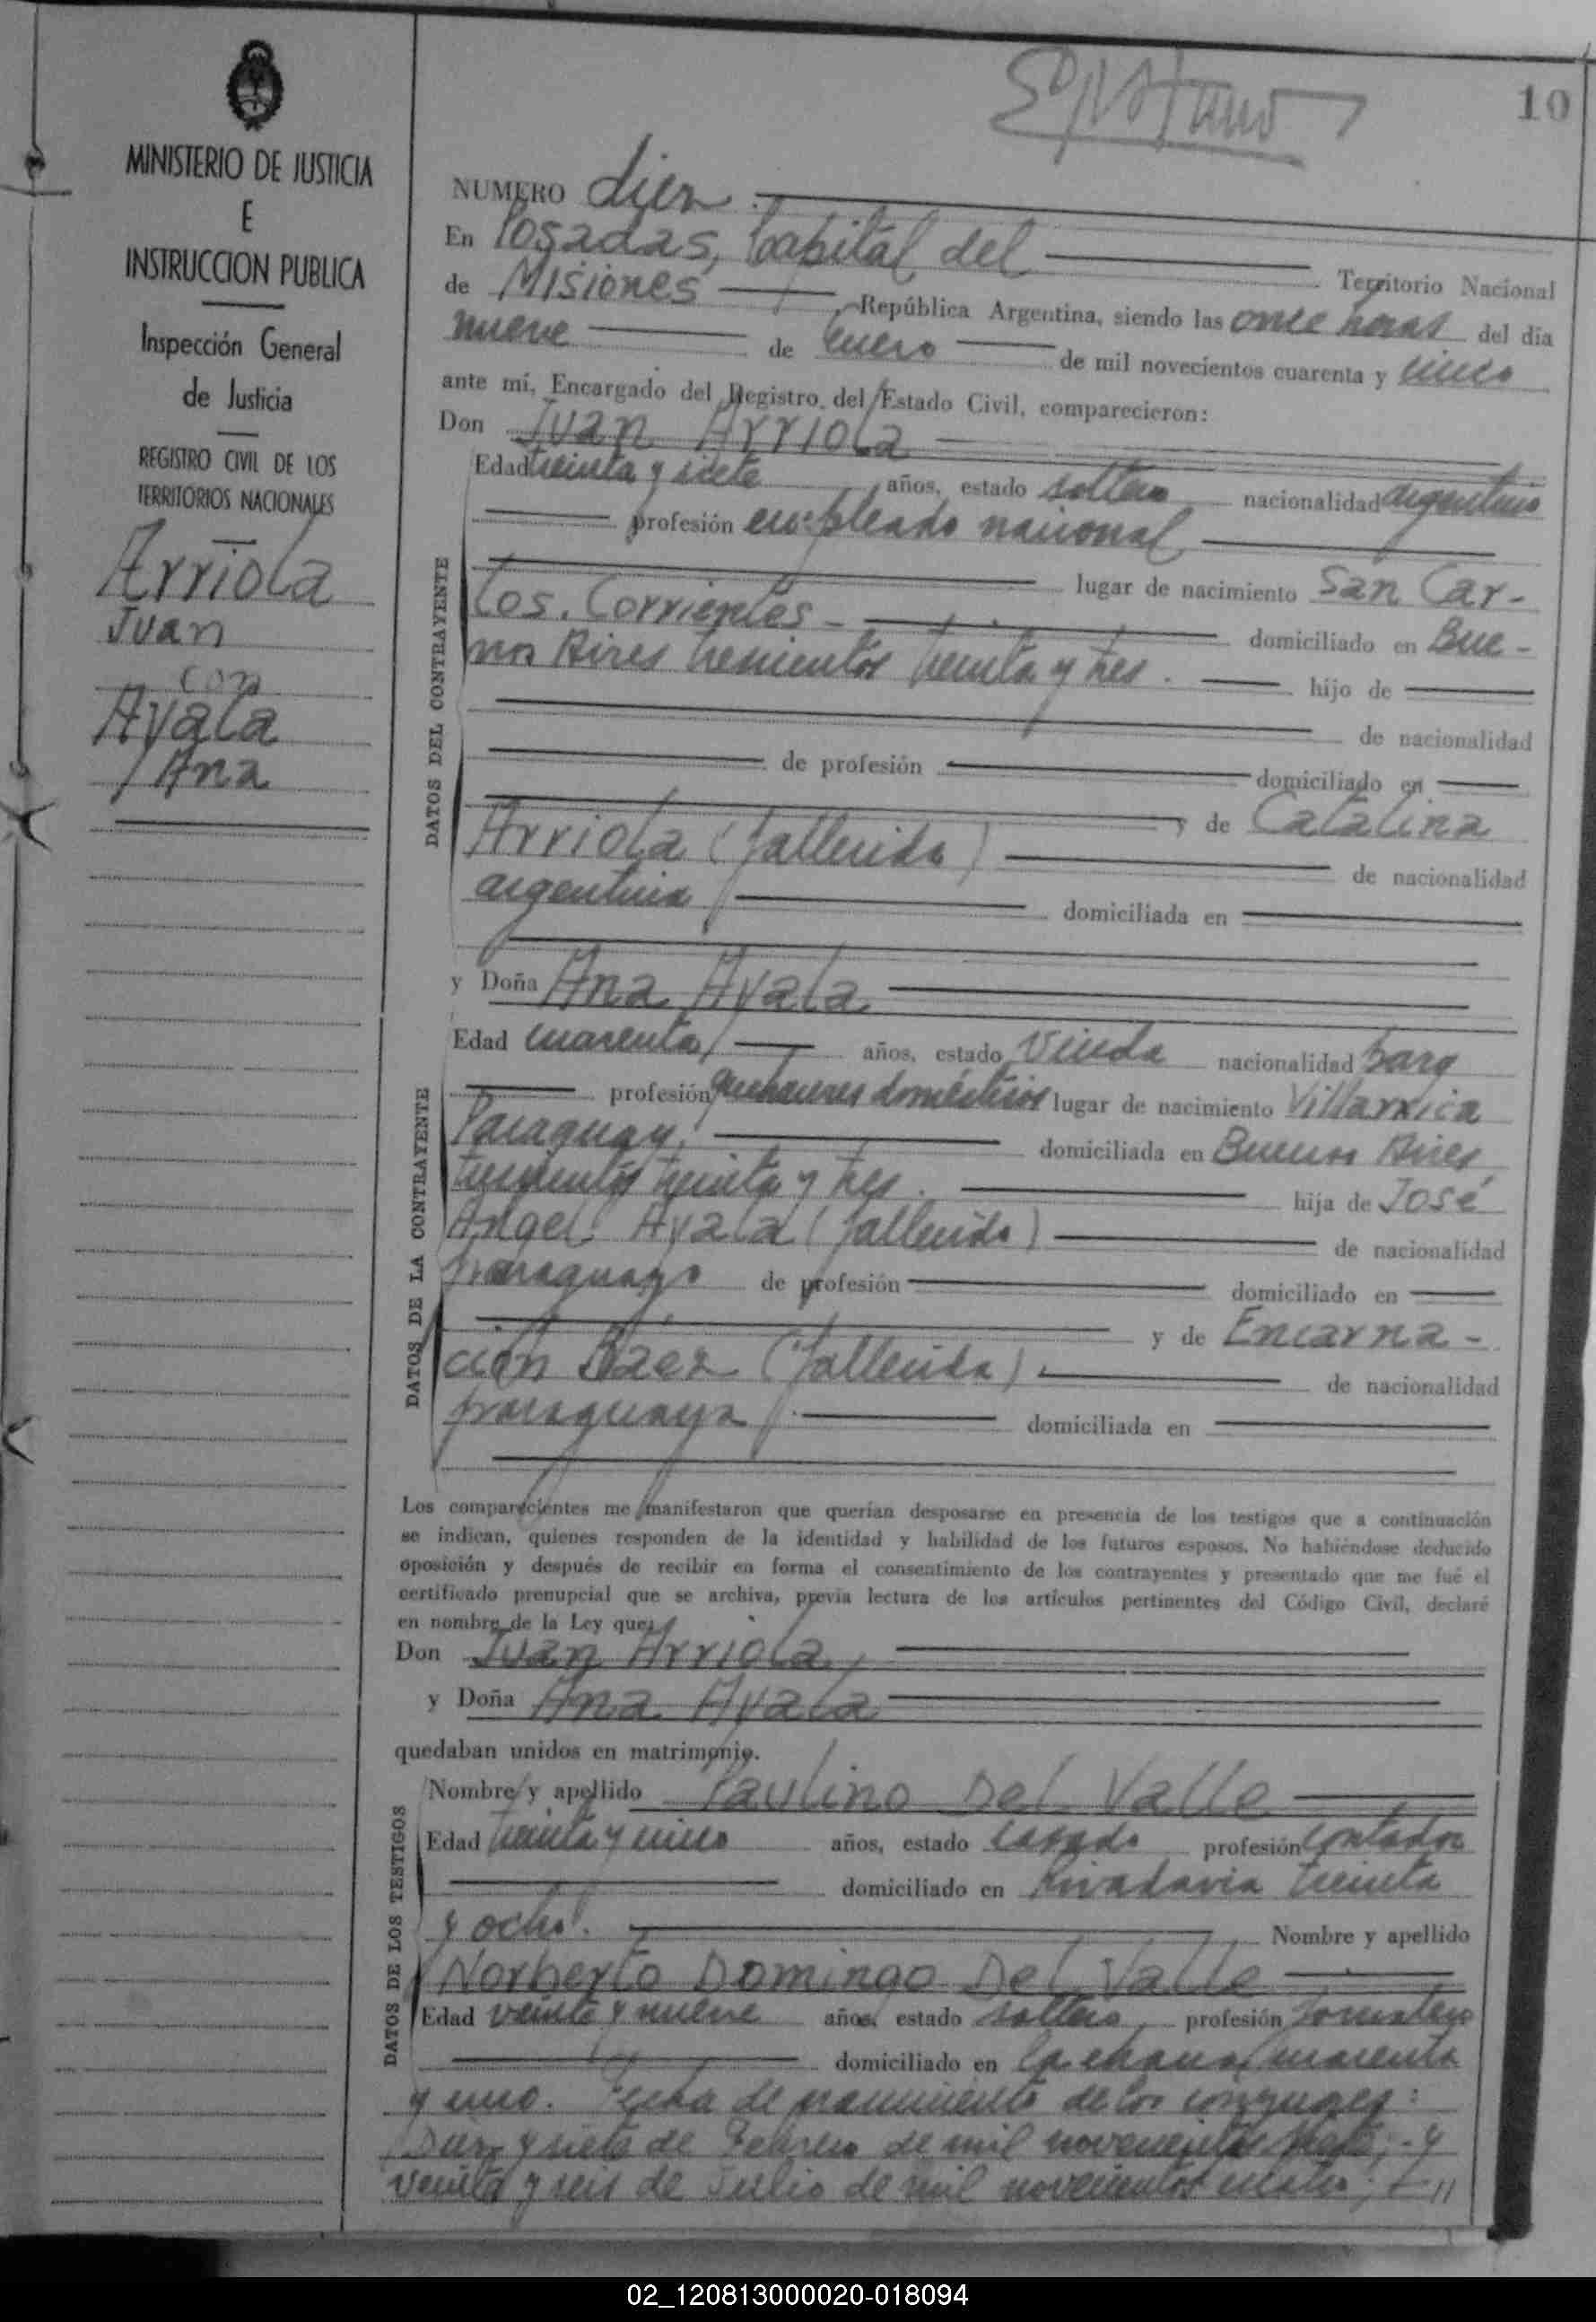 10
MINISTERIO DE JUSTICIA
E
INSTRUCCION PUBLICA
Inspección General
de Justicia
REGISTRO CIVIL DE LOS
TERRITORIOS NACIONALES
Arriola
Juan
con
Ayala
Ana
NUMERO diez
En Posadas, Capital del Territorio Nacional
de Misiones, República Argentina, siendo las once horas del día
nueve de enero de mil novecientos cuarenta y cinco
ante mí, Encargado del Registro del Estado Civil, comparecieron:
Don Juan Arriola
DATOS DEL CONTRAYENTE
Edad treinta y siete años, estado soltero nacionalidad argentino
profesión empleado nacional
lugar de nacimiento San Car-
los. Corrientes - domiciliado en Bue-
nos Aires trescientos treinta y tres. hijo de
de nacionalidad
de profesión domiciliado en
y de Catalina
Arriola (fallecida) de nacionalidad
argentina domiciliada en
y Doña Ana Ayala
DATOS DE LA CONTRAYENTE
Edad cuarenta años, estado Viuda nacionalidad parag
profesión quehaceres domésticos lugar de nacimiento Villarrica
Paraguay. domiciliada en Buenos Aires
trescientos treinta y tres. hija de José
Angel Ayala (fallecido) de nacionalidad
paraguayo de profesión domiciliado en
y de Encarna-
ción Báez (fallecida) de nacionalidad
paraguaya domiciliada en
Los comparecientes me manifestaron que querían desposarse en presencia de los testigos que a continuación
se indican, quienes responden de la identidad y habilidad de los futuros esposos. No habiéndose deducido
oposición y después de recibir en forma el consentimiento de los contrayentes y presentado que me fué el
certificado prenupcial que se archiva, previa lectura de los artículos pertinentes del Código Civil, declaré
en nombre de la Ley que:
Don Juan Arriola
y Doña Ana Ayala
quedaban unidos en matrimonio.
DATOS DE LOS TESTIGOS
Nombre y apellido Paulino Del Valle
Edad treinta y cinco años, estado casado profesión contador
domiciliado en Rivadavia treinta
y ocho. Nombre y apellido
Norberto Domingo Del Valle
Edad veinte y nueve años, estado soltero, profesión jornalero
domiciliado en cuarenta
y uno. Fecha de nacimiento de los conyuges:
Diez y siete de Febrero de mil novecientos siete; - y
veinte y seis de Julio de mil novecientos cuatro;
02_120813000020-018094